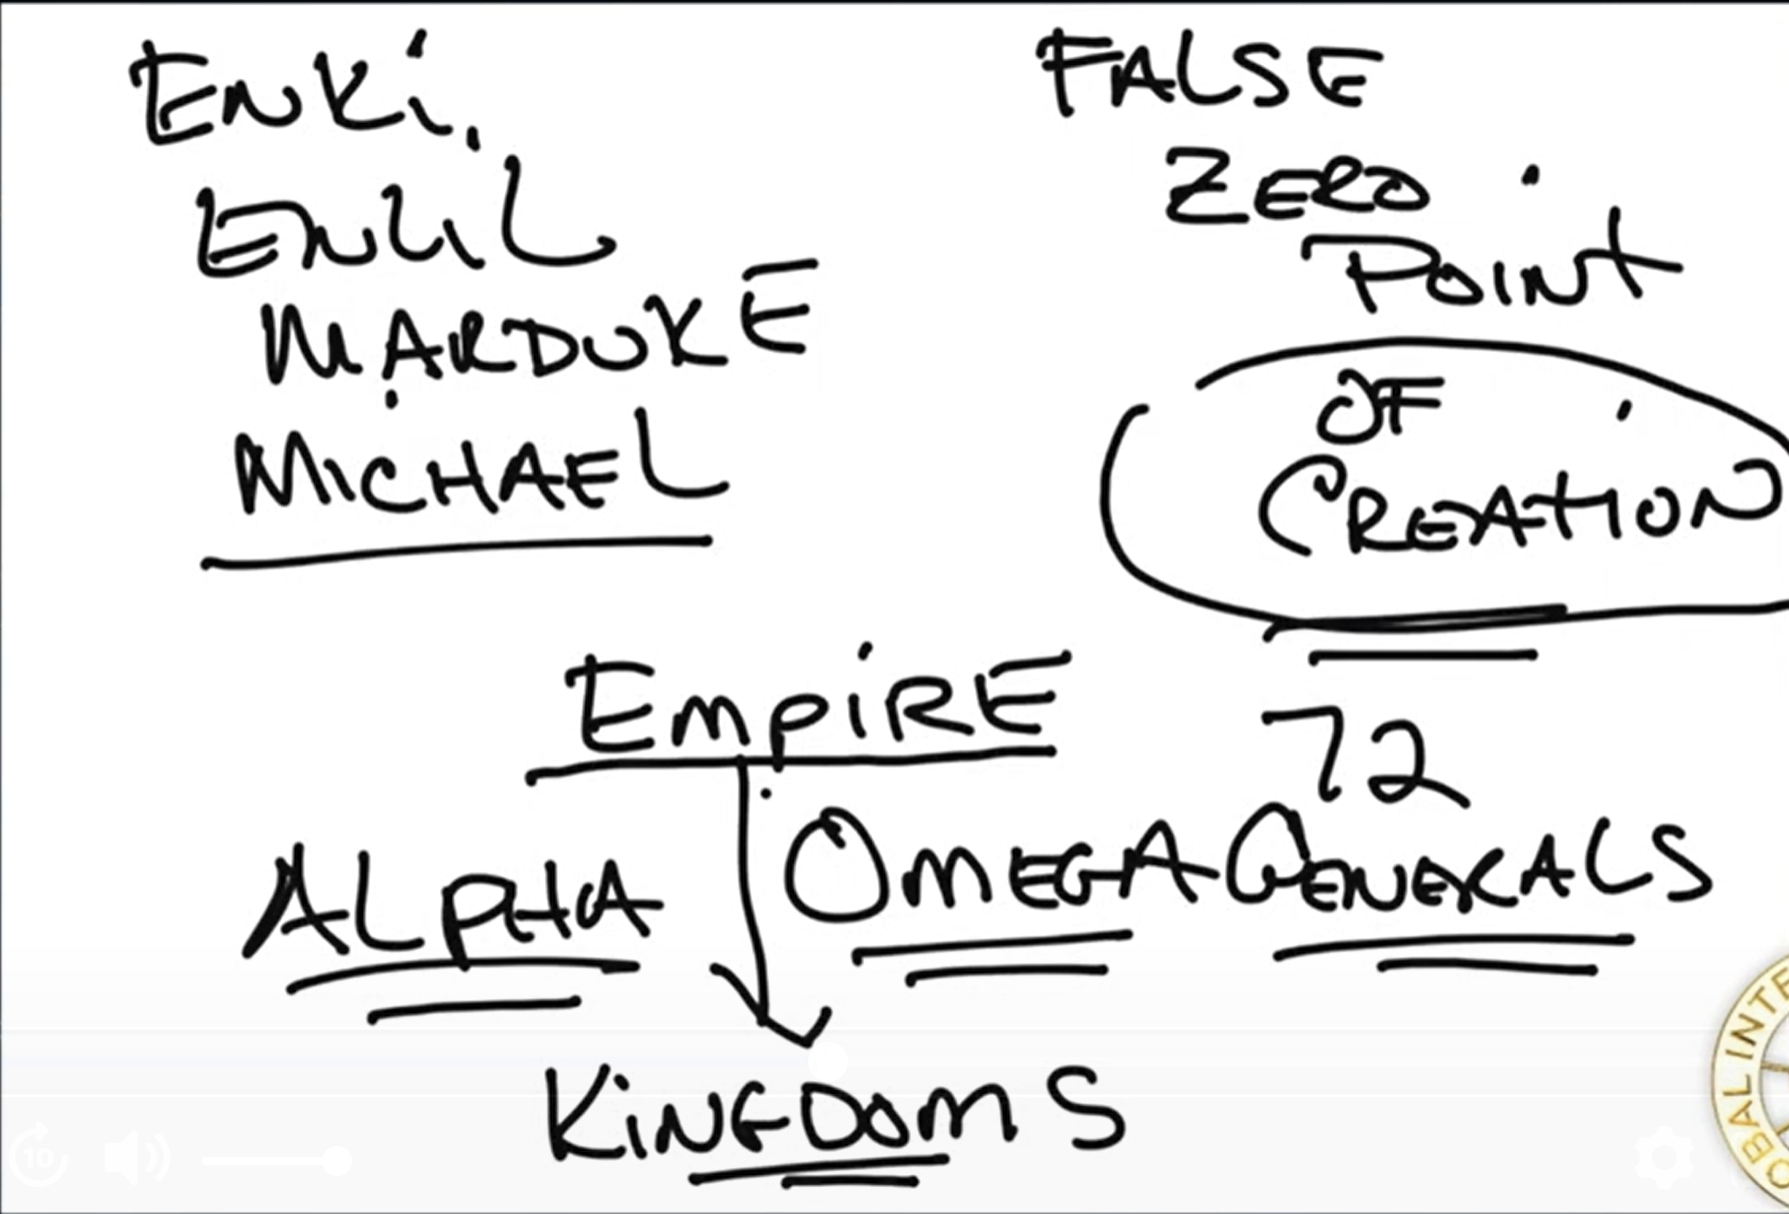 ENKi.
ENLIL
MARDUKE
MICHAEL
FALSE
ZERO
POINT
OF
CREATION
EMPiRE
72
ALPHA
OMEGA GENERALS
KiNGDOMS
10
OBAL INTE